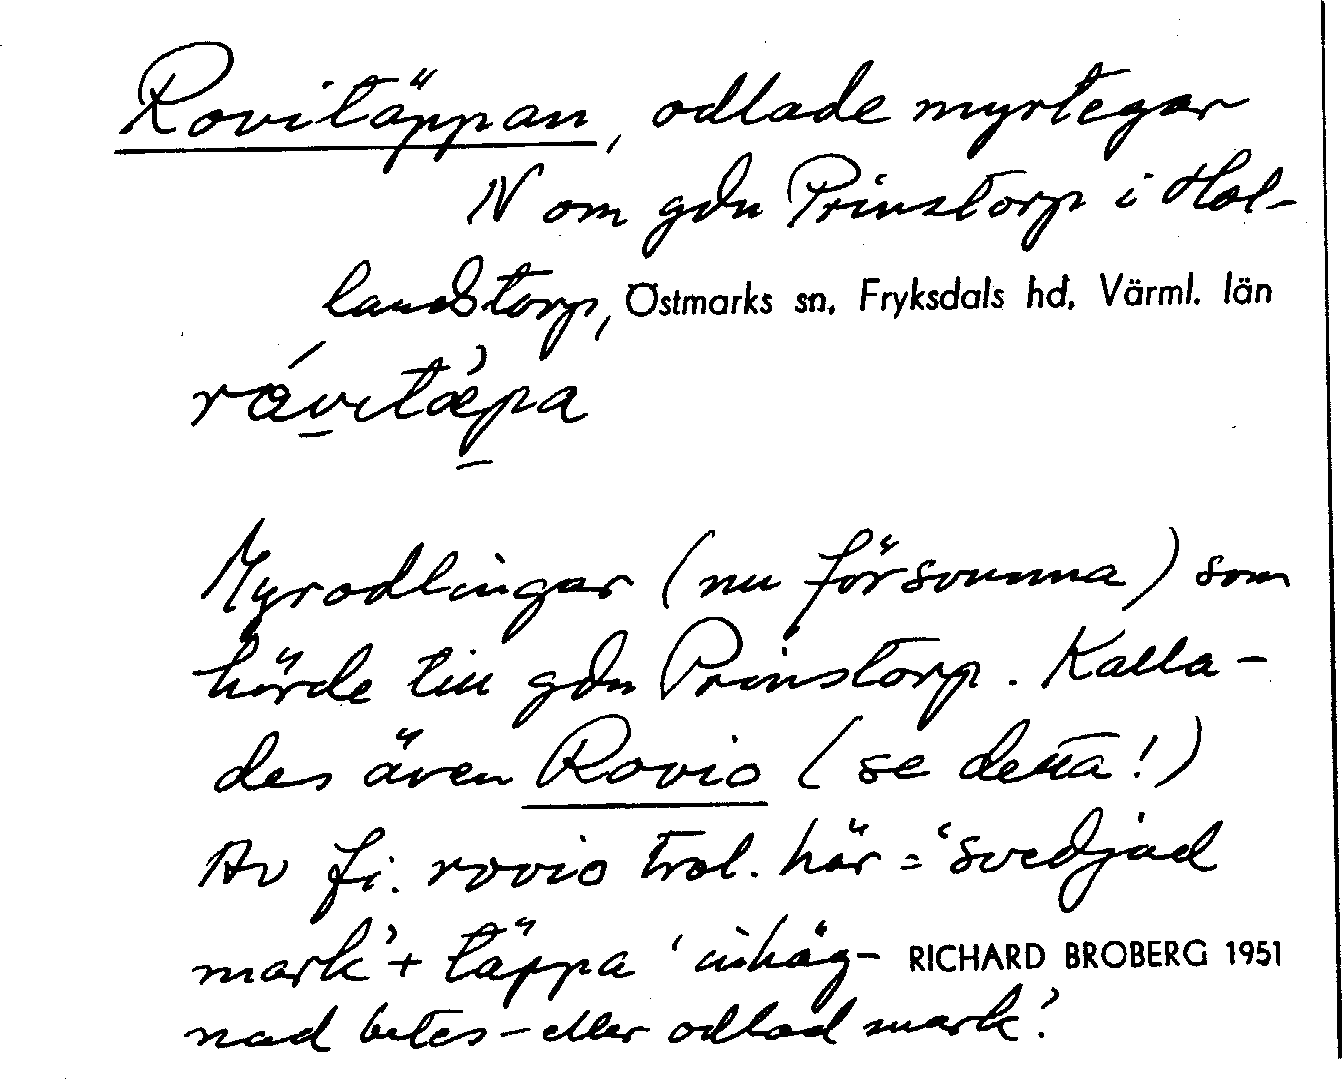 Rovitäppan, odlade myrtegar
N om gdn Prinstorp i Hol-
landstorp, Östmarks sn, Fryksdals hd, Värml. län
rɑ́vitæ̀pa
Myrodlingar (nu försvunna) som
hörde till gdn Prinstorp. Kalla-
des även Rovio (se detta!)
Av fi. rovio trol. här = 'svedjad
mark' + täppa 'inhäg- RICHARD BROBERG 1951
nad betes- eller odlad mark'.